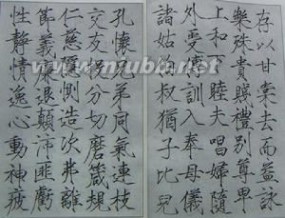 存以甘棠去而益詠
樂殊貴賤禮別尊卑
上和下睦夫唱婦隨
外受傅訓入奉母儀
諸姑伯叔猶子比兒
孔懷兄弟同氣連枝
交友投分切磨箴規
仁慈隱惻造次弗離
節義廉退顛沛匪虧
性靜情逸心動神疲